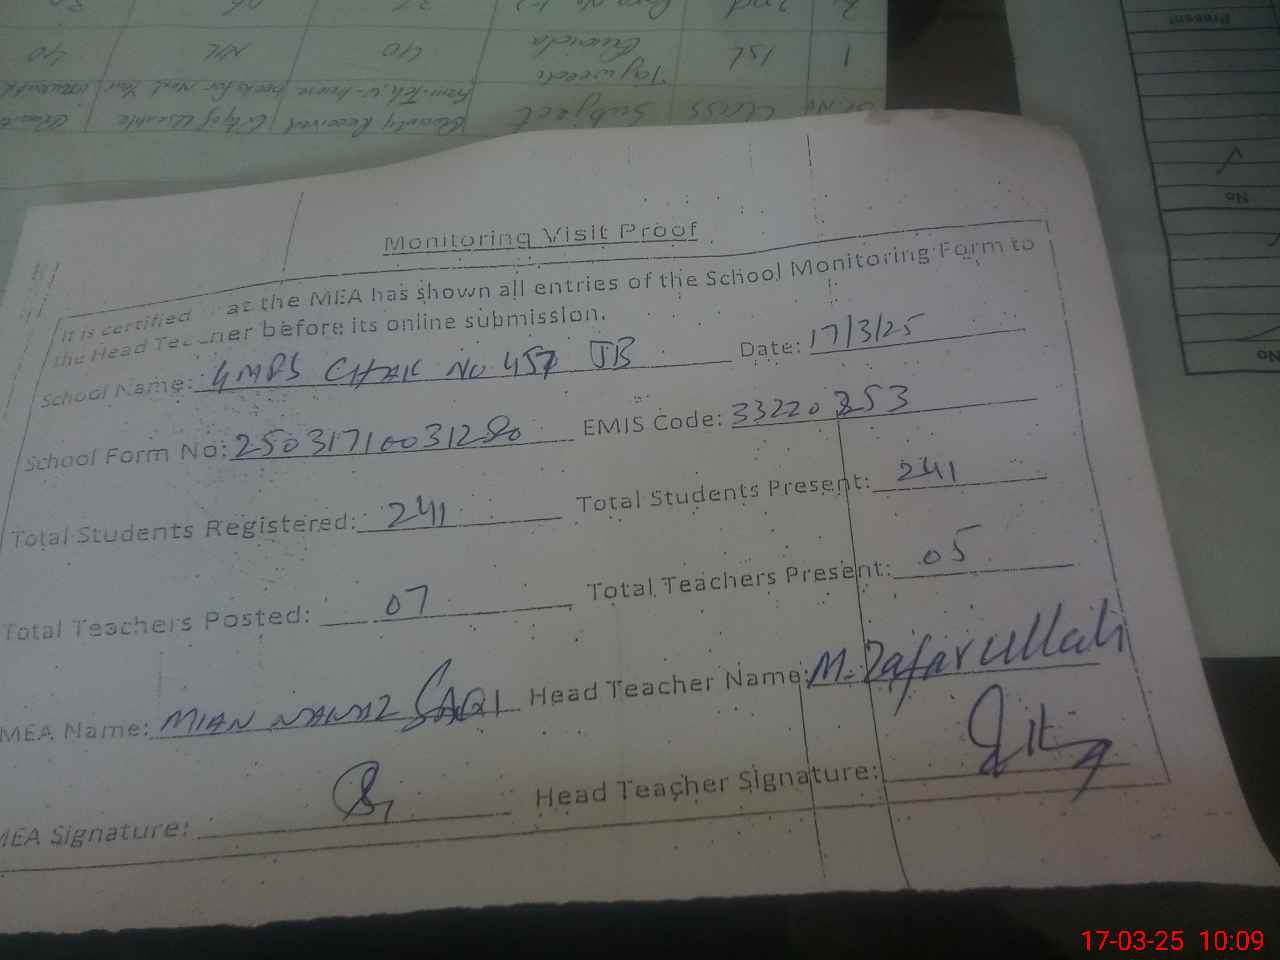 Monitoring Visit Proof
It is certified at the MEA has shown all entries of the School Monitoring Form to
the Head Tec ner before its online submission.
School Name: GMPS CHAK No 457 JB Date: 17/3/25
School Form No: 25031710031280 EMIS Code: 33220353
Total Students Registered: 241 Total Students Present: 241
Total Teachers Posted: 07 Total Teachers Present: 05
MEA Name: MIAN NAWAZ SAQI Head Teacher Name: M. Zafarullah
MEA Signature: Head Teacher Signature:
Sr. No Class Subject Quantity Received
1 1st Tajweedi 40 NIL 40
Quaida
2 2nd
Present
No
No
17-03-25 10:09